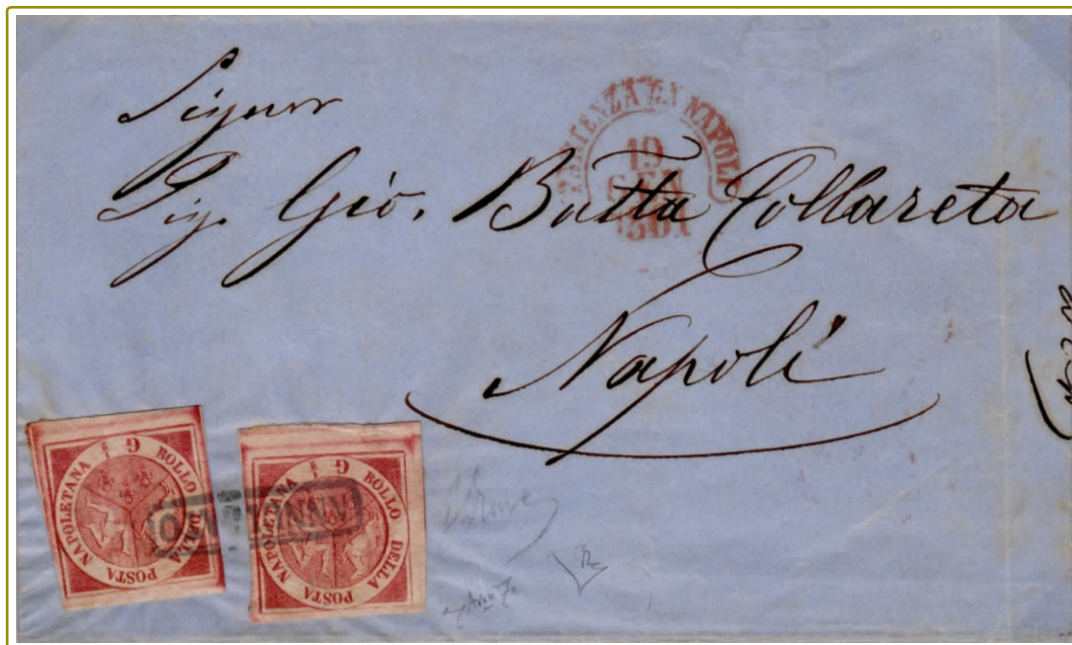 Signor
Sig. Gio. Batta Collareta
Napoli
PARTENZA DA NAPOLI
19
GEN
1861
G BOLLO DELLA POSTA NAPOLETANA ½
G BOLLO DELLA POSTA NAPOLETANA ½
ANNULLATO